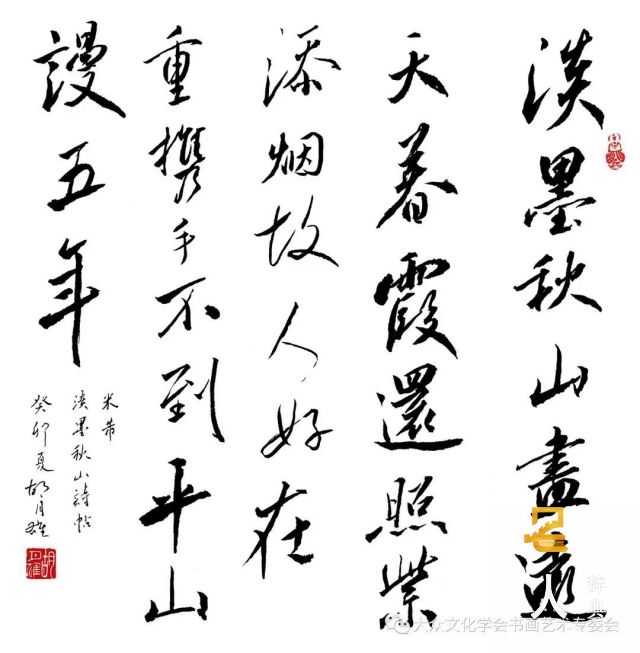 淡墨秋山盡遠
天暮霞還照紫
添烟故人好在
重携手不到平山
謾五年
米芾
淡墨秋山詩帖
癸卯夏胡月雄
人
辞典
大众文化学会书画艺术专委会